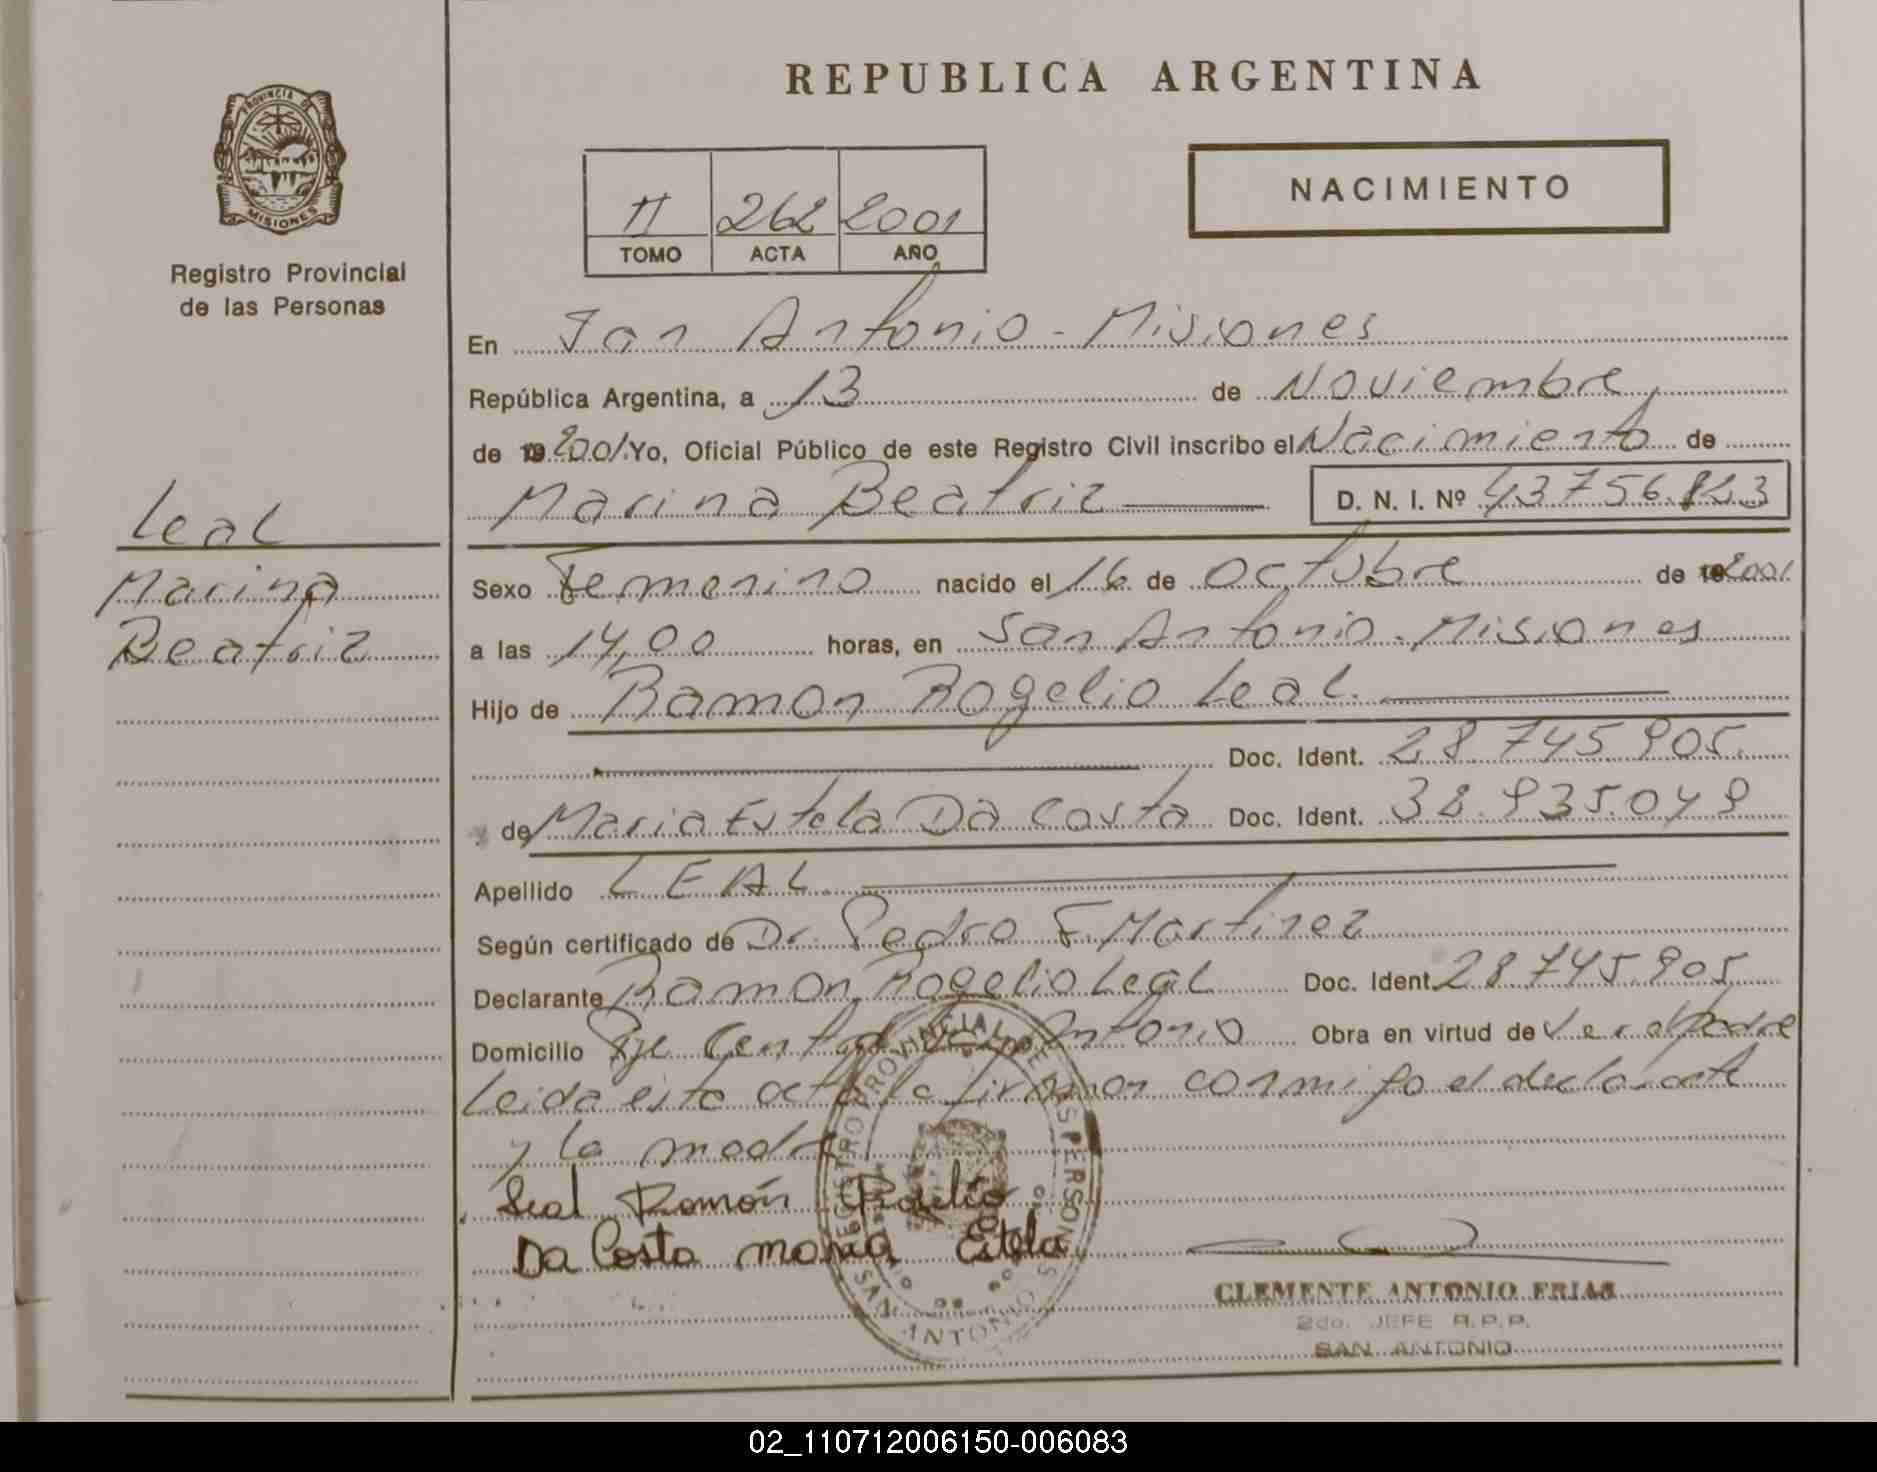 REPUBLICA ARGENTINA
PROVINCIA DE
MISIONES
Registro Provincial
de las Personas
NACIMIENTO
II 262 2001
TOMO ACTA AÑO
En San Antonio - Misiones
República Argentina, a 13 de Noviembre
de 19 2001. Yo, Oficial Público de este Registro Civil inscribo el Nacimiento de
Marina Beatriz D. N. I. Nº 43756.813
Leal
Marina
Beatriz
Sexo Femenino nacido el 16 de octubre de 19 2001
a las 14,00 horas, en San Antonio - Misiones
Hijo de Ramon Rogelio Leal
Doc. Ident. 28.745.905
y de Maria Estela Da Costa Doc. Ident. 38.935.049
Apellido LEAL
Según certificado de Dr. Pedro F. Martinez
Declarante Ramon Rogelio Leal Doc. Ident. 28.745.905
Domicilio Pje Central San Antonio Obra en virtud de ser el padre
Leida esta acta la firman conmigo el declarante
y la madre
Leal Ramón Rogelio
Da Costa maria Estela
REGISTRO PROVINCIAL DE LAS PERSONAS
SAN ANTONIO
CLEMENTE ANTONIO FRIAS
2do. JEFE R.P.P.
SAN ANTONIO
02_110712006150-006083